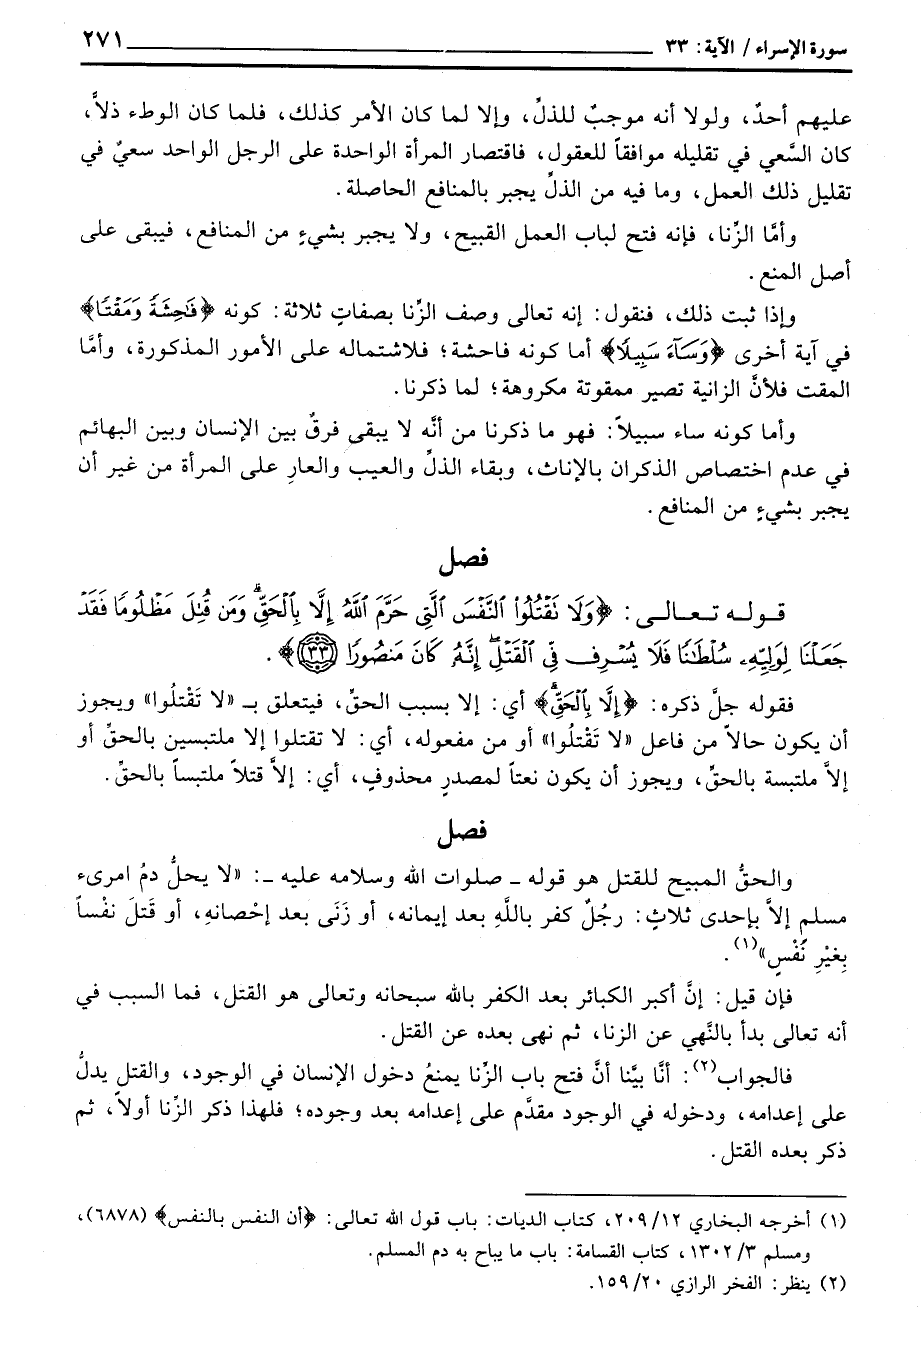 سورة الإسراء / الآية: ٣٣ ٢٧١
عليهم أحدٌ، ولولا أنه موجبٌ للذلِّ، وإلا لما كان الأمر كذلك، فلما كان الوطء ذلاًّ،
كان السَّعي في تقليله موافقاً للعقول، فاقتصار المرأة الواحدة على الرجل الواحد سعيٌ في
تقليل ذلك العمل، وما فيه من الذلِّ يجبر بالمنافع الحاصلة.
وأمَّا الزِّنا، فإنه فتح لباب العمل القبيح، ولا يجبر بشيءٍ من المنافع، فيبقى على
أصل المنع.
وإذا ثبت ذلك، فنقول: إنه تعالى وصف الزِّنا بصفاتٍ ثلاثة: كونه ﴿فَٰحِشَةٗ وَمَقۡتٗا﴾
في آية أخرى ﴿وَسَآءَ سَبِيلٗا﴾ أما كونه فاحشة؛ فلاشتماله على الأمور المذكورة، وأمَّا
المقت فلأنَّ الزانية تصير ممقوتة مكروهة؛ لما ذكرنا.
وأما كونه ساء سبيلاً: فهو ما ذكرنا من أنَّه لا يبقى فرقٌ بين الإنسان وبين البهائم
في عدم اختصاص الذكران بالإناث، وبقاء الذلِّ والعيب والعارِ على المرأة من غير أن
يجبر بشيءٍ من المنافع.
فصل
قوله تعالى: ﴿وَلَا تَقۡتُلُواْ ٱلنَّفۡسَ ٱلَّتِي حَرَّمَ ٱللَّهُ إِلَّا بِٱلۡحَقِّۗ وَمَن قُتِلَ مَظۡلُومٗا فَقَدۡ
جَعَلۡنَا لِوَلِيِّهِۦ سُلۡطَٰنٗا فَلَا يُسۡرِف فِّي ٱلۡقَتۡلِۖ إِنَّهُۥ كَانَ مَنصُورٗا ٣٣﴾.
فقوله جلَّ ذكره: ﴿إِلَّا بِٱلۡحَقِّۗ﴾ أي: إلا بسبب الحقِّ، فيتعلق بـ «لا تَقْتلُوا» ويجوز
أن يكون حالاً من فاعل «لا تَقْتلُوا» أو من مفعوله، أي: لا تقتلوا إلا ملتبسين بالحقِّ أو
إلاَّ ملتبسة بالحقِّ، ويجوز أن يكون نعتاً لمصدرٍ محذوفٍ، أي: إلاَّ قتلاً ملتبساً بالحقِّ.
فصل
والحقُّ المبيح للقتل هو قوله ـ صلوات الله وسلامه عليه ـ: «لا يحلُّ دمُ امرىء
مسلم إلاَّ بإحدى ثلاثٍ: رجُلٌ كفر باللَّهِ بعد إيمانه، أو زَنَى بعد إحْصانهِ، أو قَتلَ نفْساً
بِغيْرِ نَفْسٍ»(١).
فإن قيل: إنَّ أكبر الكبائر بعد الكفر بالله سبحانه وتعالى هو القتل، فما السبب في
أنه تعالى بدأ بالنَّهي عن الزنا، ثم نهى بعده عن القتل.
فالجواب(٢): أنَّا بيَّنا أنَّ فتح باب الزِّنا يمنعُ دخول الإنسان في الوجود، والقتل يدلُّ
على إعدامه، ودخوله في الوجود مقدَّم على إعدامه بعد وجوده؛ فلهذا ذكر الزِّنا أولاً، ثم
ذكر بعده القتل.
(١) أخرجه البخاري ٢٠٩/١٢، كتاب الديات: باب قول الله تعالى: ﴿أن النفس بالنفس﴾ (٦٨٧٨)،
ومسلم ١٣٠٢/٣، كتاب القسامة: باب ما يباح به دم المسلم.
(٢) ينظر: الفخر الرازي ١٥٩/٢٠.